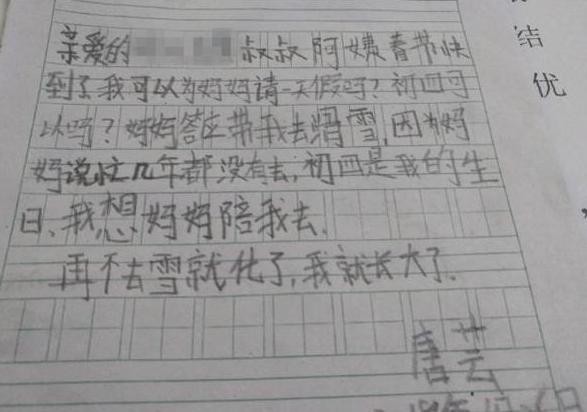 亲爱的 叔叔阿姨春节快
到了我可以为妈妈请一天假吗?初四可
以吗?妈妈答应带我去滑雪,因为妈
妈说忙几年都没有去,初四是我的生
日、我想妈妈陪我去.
再不去雪就化了,我就长大了.
唐芸
结
优